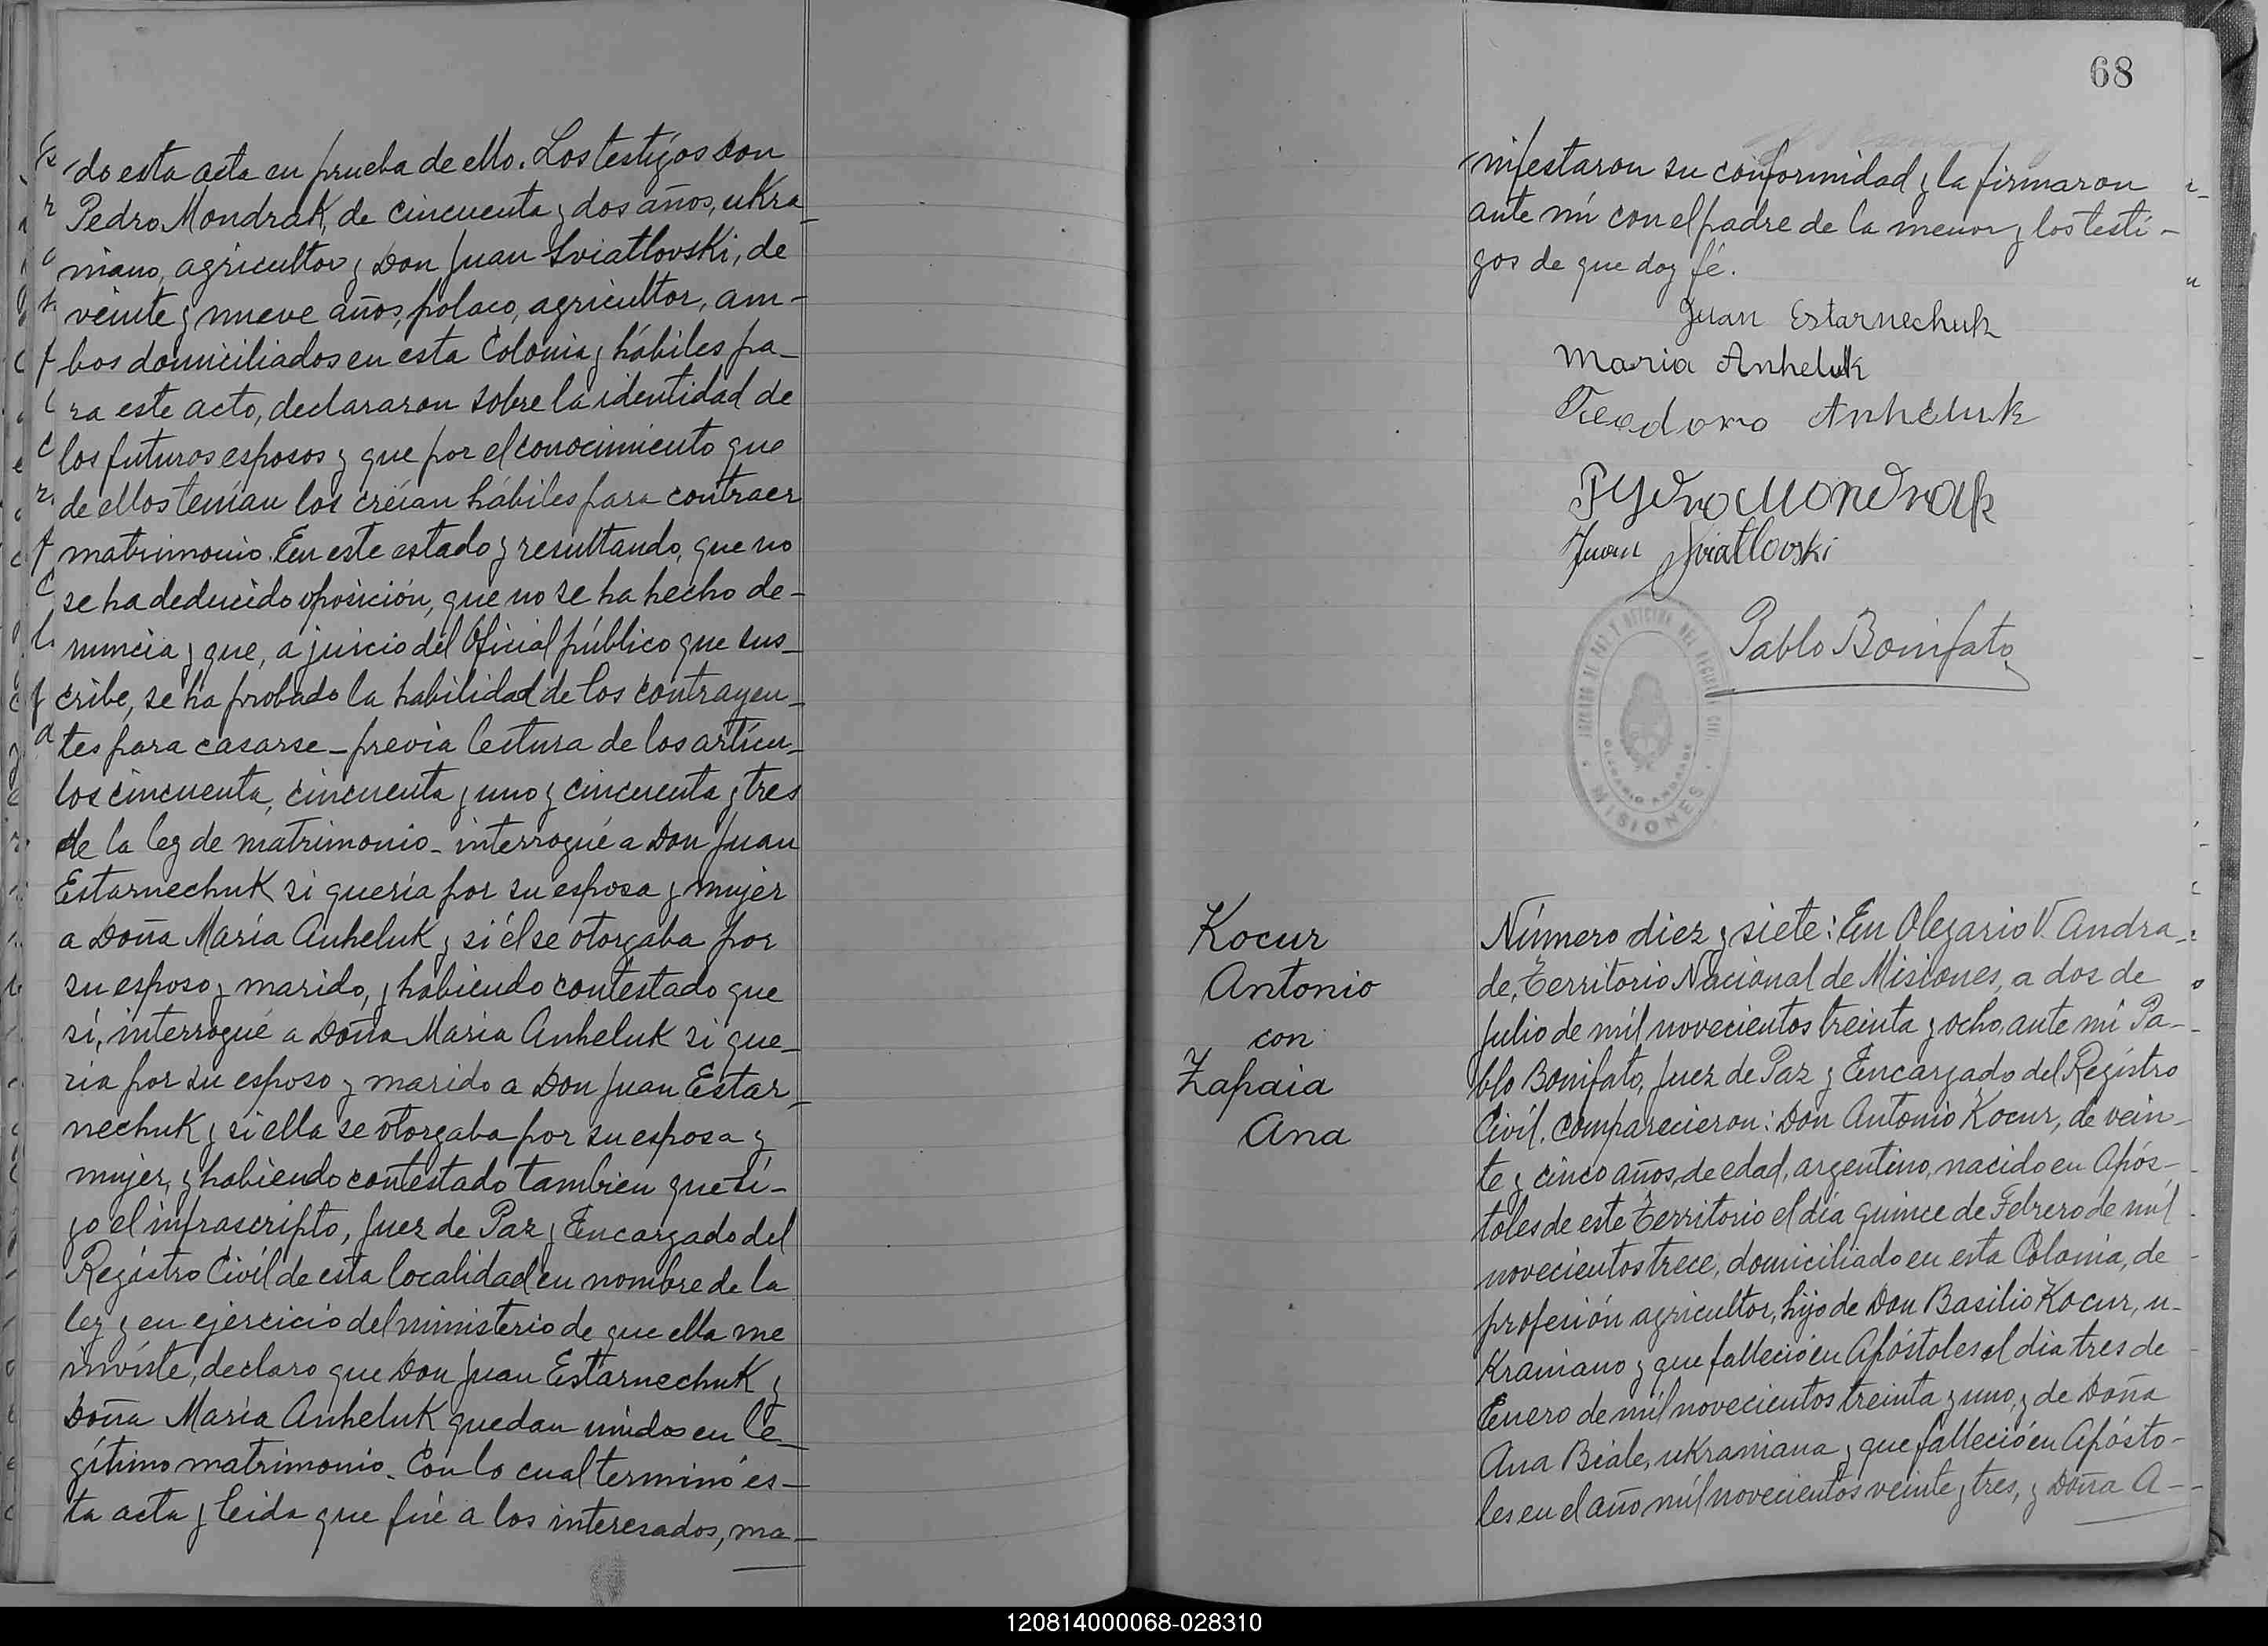 do esta acta en prueba de ello. Los testigos Don
Pedro Mondrak, de cincuenta y dos años, ukra-
niano, agricultor y Don Juan Sviatlovski, de
veinte y nueve años, polaco, agricultor, am-
bos domiciliados en esta Colonia y hábiles pa-
ra este acto, declararon sobre la identidad de
los futuros esposos y que por el conocimiento que
de ellos tenían los creían hábiles para contraer
matrimonio. En este estado y resultando, que no
se ha deducido oposición, que no se ha hecho de-
nuncia y que, a juicio del Oficial público que sus-
cribe, se ha probado la habilidad de los contrayen-
tes para casarse - previa lectura de los artícu-
los cincuenta, cincuenta y uno y cincuenta y tres
de la ley de matrimonio - interrogué a Don Juan
Estarnechuk si quería por su esposa y mujer
a Doña María Anheluk y si él se otorgaba por
su esposo y marido, y habiendo contestado que
sí, interrogué a Doña María Anheluk si que-
ría por su esposo y marido a Don Juan Estar-
nechuk y si ella se otorgaba por su esposa y
mujer, y habiendo contestado tambien que sí -
yo el infrascripto, Juez de Paz y Encargado del
Registro Civíl de esta localidad en nombre de la
ley y en ejercicio del ministerio de que ella me
inviste, declaro que Don Juan Estarnechuk y
Doña María Anheluk quedan unidos en le-
gítimo matrimonio. Con lo cual terminó es-
ta acta y leida que fué a los interesados, ma-
68
nifestaron su conformidad y la firmaron
ante mí con el padre de la menor y los testi-
gos de que doy fé.
Juan Estarnechuk
Maria Anheluk
Teodoro Anheluk
Pydro Mondrak
Juan Sviatlovski
Pablo Bonifato
JUZGADO DE PAZ Y OFICINA DEL REGISTRO CIVIL
OLEGARIO ANDRADE
MISIONES
Kocur
Antonio
con
Zapaia
Ana
Número diez y siete: En Olegario V. Andra-
de, Territorio Nacional de Misiones, a dos de
Julio de mil novecientos treinta y ocho, ante mí Pa-
blo Bonifato, Juez de Paz y Encargado del Registro
Civíl. Comparecieron: Don Antonio Kocur, de vein-
te y cinco años de edad, argentino, nacido en Após-
toles de este Territorio el día quince de Febrero de mil
novecientos trece, domiciliado en esta Colonia, de
profesión agricultor, hijo de Don Basilio Kocur, u-
kraniano y que falleció en Apóstoles el día tres de
Enero de mil novecientos treinta y uno, y de Doña
Ana Biale, ukraniana y que falleció en Apósto-
les en el año mil novecientos veinte y tres, y Doña A-
120814000068-028310